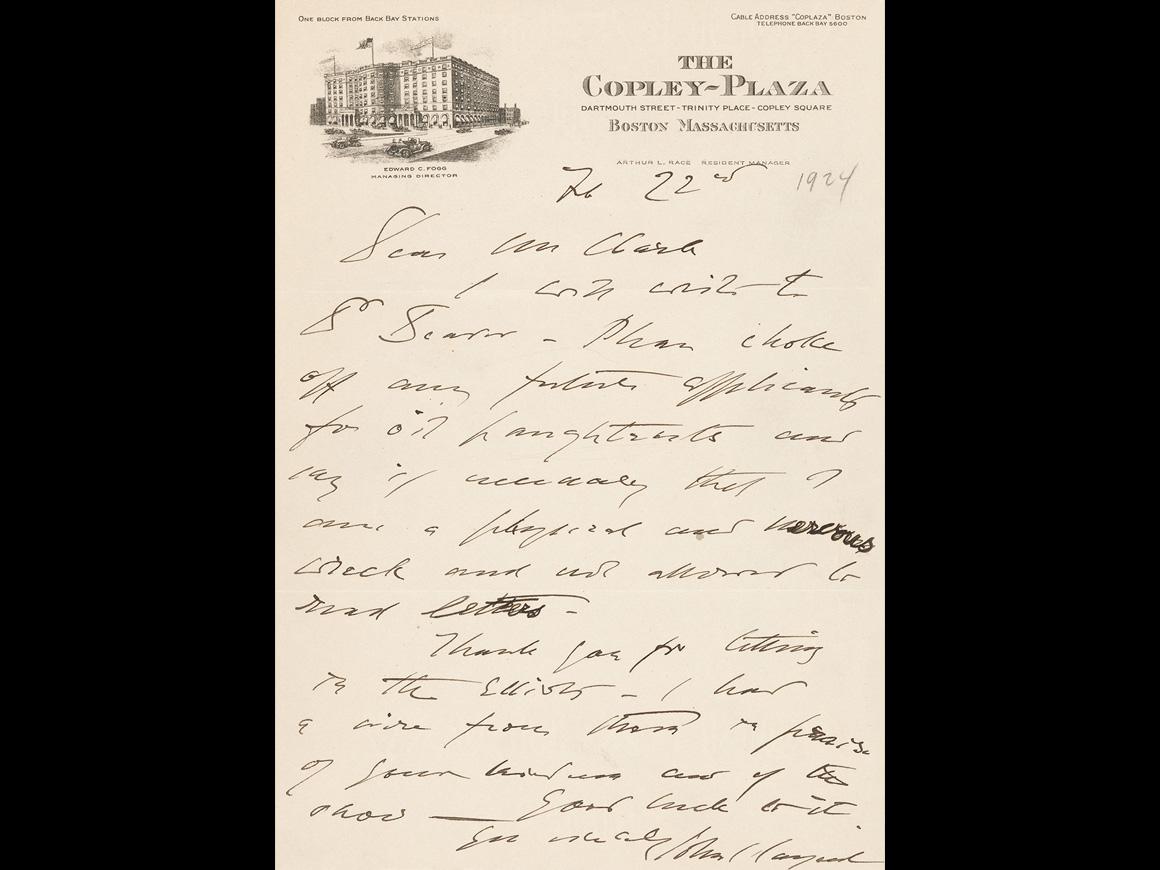 ONE BLOCK FROM BACK BAY STATIONS
CABLE ADDRESS "COPLAZA" BOSTON
TELEPHONE BACK BAY 5600
THE
COPLEY-PLAZA
DARTMOUTH STREET - TRINITY PLACE - COPLEY SQUARE
BOSTON MASSACHUSETTS
EDWARD C. FOGG
MANAGING DIRECTOR
ARTHUR L. RACE RESIDENT MANAGER
Feb 22nd 1924
Dear Mr Clark
I will write to
Dr - Please choke
off any future applicants
for oil paughtraits and
say if necessary that I
am a physical and nervous
wreck and not allowed to
read letters -
Thank you for letting
in the Elliots - I had
a wire from them in praise
of your kindness and of the
show — Good luck to it.
Yrs sincerely John S Sargent